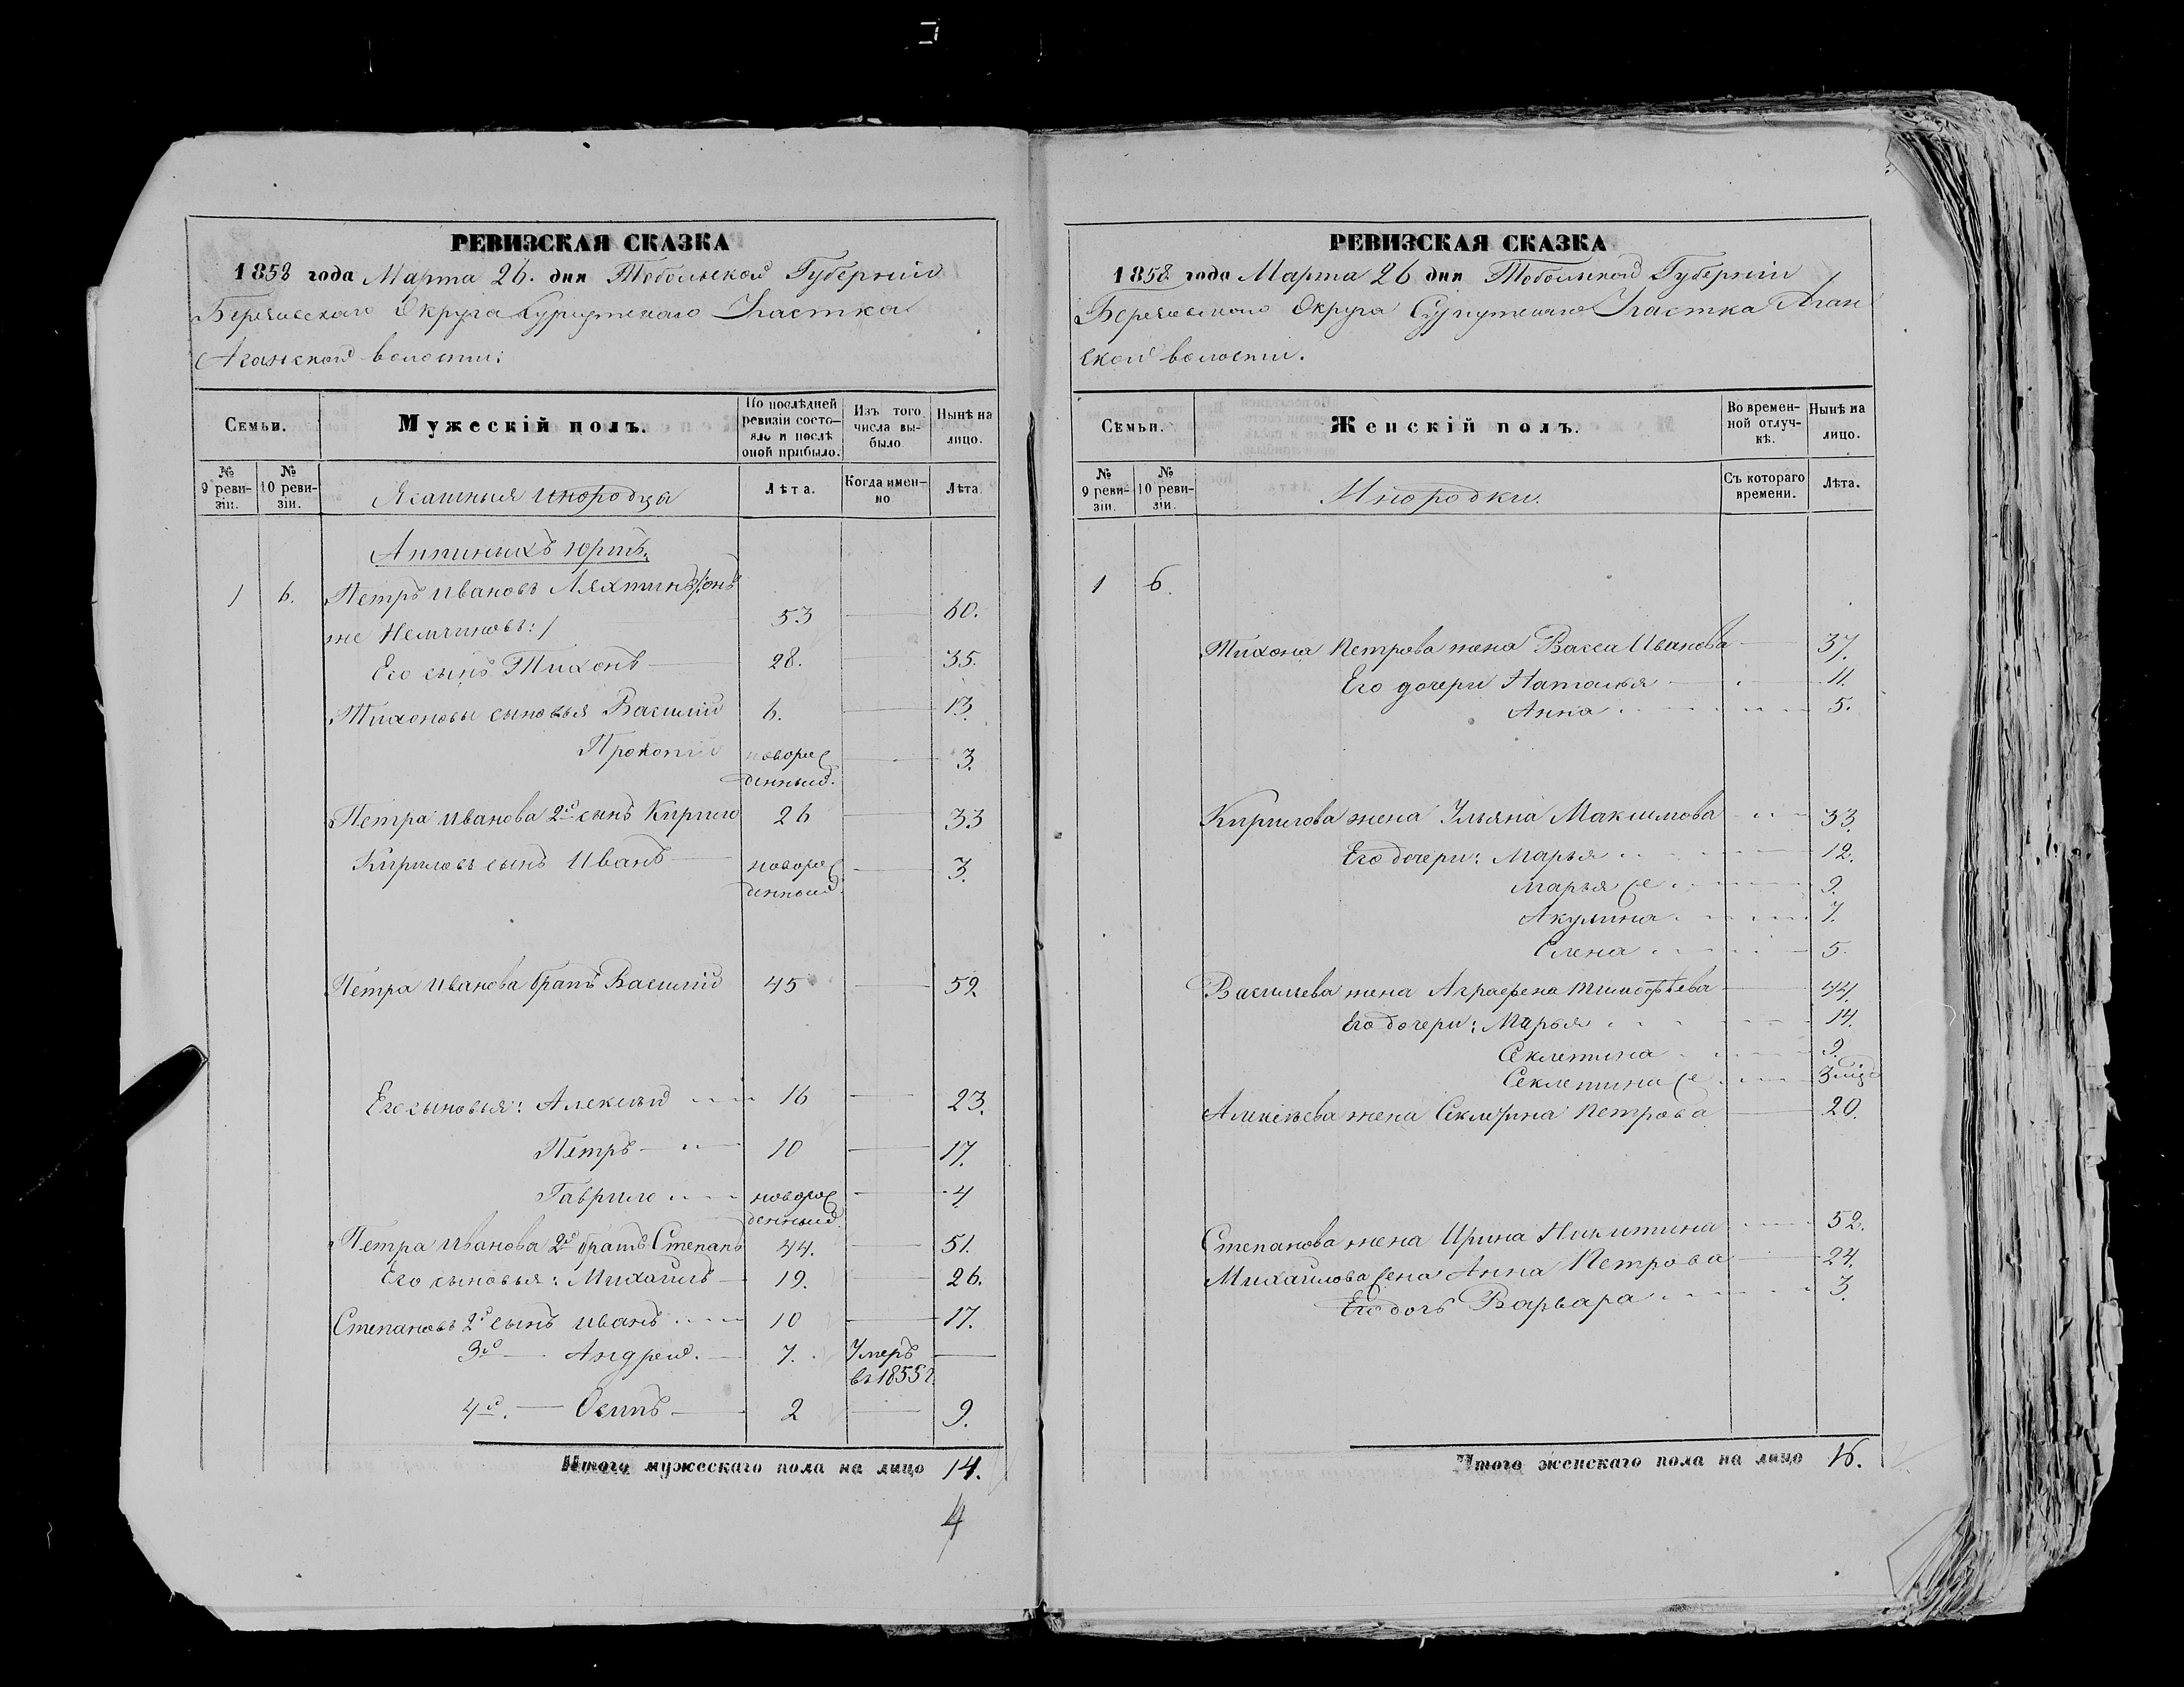 РЕВИЗСКАЯ СКАЗКА
1858 года Марта 26. дня Тобольской Губерніи
Березовскаго Округа Сургутскаго Участка
Аганской волости:
Семьи.
Мужескій полъ.
По послѣдней ревизіи состояло и послѣ оной прибыло.
Изъ того числа выбыло
Нынѣ на лицо.
№ 9 ревизіи.
№ 10 ревизіи.
Ясашныя инородцы
Лѣта.
Когда именно
Лѣта.
юртъ.
1 6. Петръ Ивановъ Ляхтинъ /:онъ
же Немчиновъ:/ 53 60.
Его сынъ Тихонъ 28. 35.
Тихоновы сыновья Василій 6. 13.
Прокопій новорож 3.
денный.
Петра Иванова 2й сынъ Кирило 26 33
Кириловъ сынъ Иванъ новорож 3.
денный.
Петра Иванова братъ Василій 45 52
Его сыновья: Алексѣй 16 23.
Петръ 10 17.
Гаврило новорож 4
денный.
Петра Иванова 2й братъ Степанъ 44. 51.
Его сыновья: Михайлъ 19. 26.
Степановъ 2й сынъ Иванъ 10 17.
3й Андрей. 7. Умеръ
въ 1855 г.
4й. Осипъ 2 9.
Итого мужескаго пола на лицо 14.
4
РЕВИЗСКАЯ СКАЗКА
1858 года Марта 26 дня Тобольской Губерніи
Березовскаго Округа Сургутскаго Участка Аган
ской волости.
Семьи.
Женскій полъ.
Во временной отлучкѣ.
Нынѣ на лицо.
№ 9 ревизіи.
№ 10 ревизіи.
Инородки.
Съ котораго времени.
Лѣта.
1 6.
Тихона Петрова жена Васса Иванова 37.
Его дочери Наталья 11.
Анна 5.
Кирилова жена Ульяна Максимова 33.
Его дочери: Марья 12.
Марья же 9.
Акулина 7.
Елена 5.
Васильева жена Аграфена Тимофѣева 44.
Его дочери: Марья 14.
Секлетина 9.
Секлетина же 3
Алексѣева жена Секлетина Петрова 20.
Степанова жена Ирина Никитина 52.
Михайлова жена Анна Петрова 24.
Его дочь Варвара 3.
Итого женскаго пола на лицо 16.